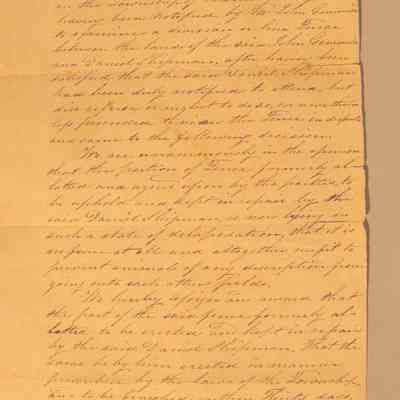 in the Township of
having been notified by Mr John
to examine a division or line Fence
between the lands of the said John
and Daniel Shipman, after having been
satisfied that the said Daniel Shipman
had been duly notified to attend, but
did refuse or neglect to do so, on
proceeded to view the Fence in dispute
and came to the following decision.
We are unanimously in the opinion
that the portion of Fence formerly al-
lotted and agreed upon by the parties to
be upheld and kept in repair by the
said Daniel Shipman, is now lying in
such a state of delapidation, that it is
no fence at all and altogether unfit to
prevent animals of any description from
going into each others fields.
We hereby award that
the part of the said fence formerly al-
lotted to be erected and kept in repair
by the said Daniel Shipman, That the
same be by him erected in manner
prescribed by the laws of the Township
and to be finished within Thirty days